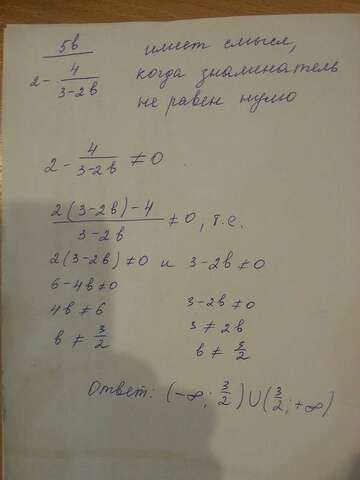 5в / (2 - 4/(3-2в)) имеет смысл,
когда знаменатель
не равен нулю
2 - 4/(3-2в) ≠ 0
(2(3-2в)-4)/(3-2в) ≠ 0, т.е.
2(3-2в) ≠ 0 и 3-2в ≠ 0
6-4в ≠ 0
4в ≠ 6
в ≠ 3/2
3-2в ≠ 0
3 ≠ 2в
в ≠ 3/2
Ответ: (-∞; 3/2) ∪ (3/2; +∞)